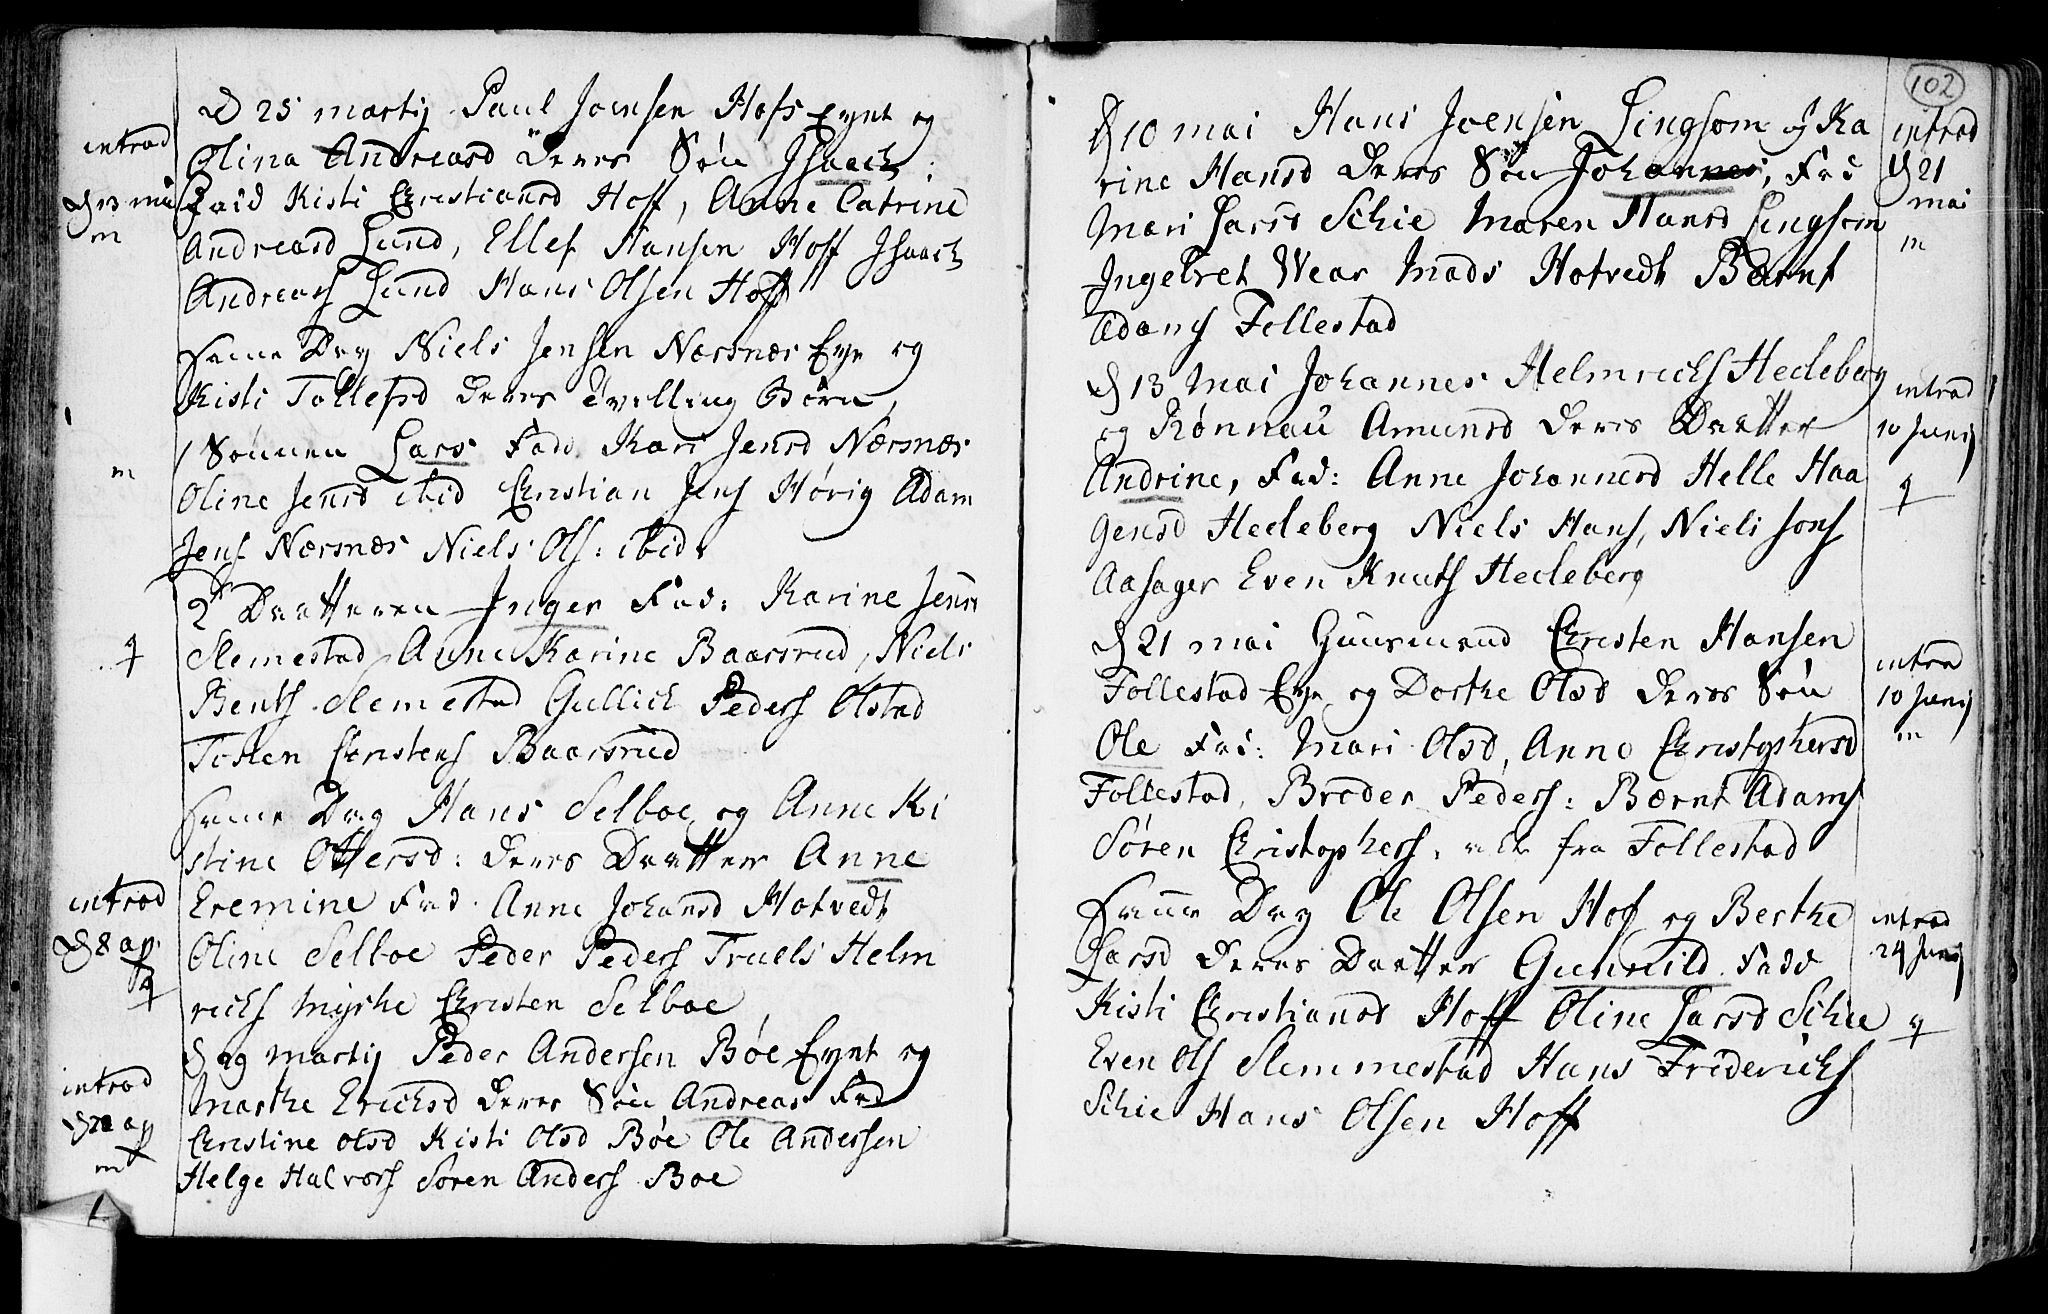 D 25 martij Paul Joensen Hofs Eynt og
Olina Andreasd Deres Søn Jsaach.
Fad Kisti Christiansd Hoff, Anne Catrine
Andreasd Lund, Ellef Hansen Hoff Jsaach
Andreas Lund Hans Olsen Hoff
Same Dag Niels Jensen Nærsnæs Eye og
Kisti Tollefsd Deres Tvilling Børn,
1 Sønnen Lars Fadd. Kari Jensd Nærsnæs
Oline Jensd ibid Christian Jens Hørig Adam
Jens Nærsnæs Niels Ols: ibid.
2 Datteren Inger Fad: Karine Jensd
Slemestad Anne Karine Baarsrud, Niels
Bents Slemestad Gullich Peders Olstad
Tosten Christens Baarsrud
Same Dag Hans Selboe og Anne Ki
stine Ottersd: Deres Datter Anne
Eremine Fad. Anne Johansd Hotvedt
Oline Selboe Peder Peders Truels Helm
richs Myrhe Christen Selboe
D 29 martij Peder Andersen Bøe Eynt og
Marthe Erichsd Deres Søn Andreas Fad
Christine Olsd Kisti Olsd Bøe Ole Andersen
Helge Halvors Søren Anders Boe
introd
D 13 mai
m
m
q
introd
D 8 ap.
q
introd
D 22 ap
m
102
D 10 mai Hans Joensen Lingsom og Ka
rine Hansd Deres Søn Johannes, Fad
Mari Larsd Schie Maren Hansd Lingsom
Ingebret Wear Mads Hotvedt Bærnt
Adams Follestad
D 13 Mai Johannes Helmrichs Hedeberg
og Rønnau Amunsd Deres Datter
Andrine, Fad: Anne Johannesd Helle Haa
gensd Hedeberg Niels Hans, Niels Jons
Aasager Even Knuts Hedeberg
D 21 mai Huusmand Christen Hansen
Follestad Eye og Dorthe Olsd Deres Søn
Ole Fad: Mari Olsd, Anne Christophersd
Follestad, Breder Peders: Bærnt Adams
Søren Christophers, alle fra Follestad
Same Dag Ole Olsen Hof og Berthe
Larsd Deres Datter Gunnild Fadd
Kisti Christiansd Hoff Oline Larsd Schie
Even Ols Slemmestad Hans Friderichs
Schie Hans Olsen Hoff
introd
D 21
mai
m
introd
10 Junij
q
introd
10 Junij
m
introd
24 Junij
q